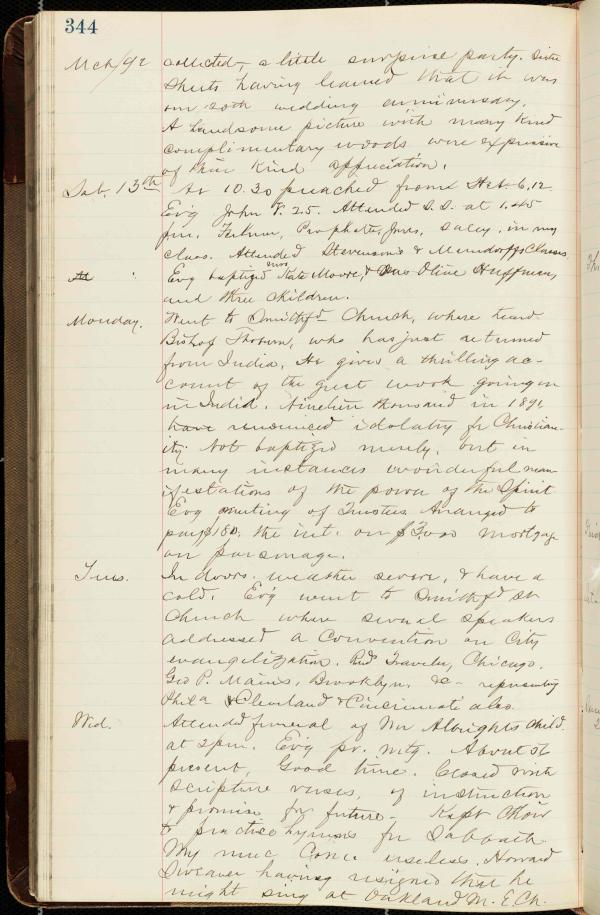 344
Mch/92 collected, a little surprise party. Sister
Sheets having learned that it was
our 20th wedding anniversary.
A handsome picture with many kind
complimentary words were expressive
of their kind appreciation.
Sab. 13th At 10.30 preached from Heb. 6.12
Ev'g John 5.25. Attended S.S. at 1.45
pm. in my
class. Attended Stevenson's & Mundorffs Classes.
Ev'g baptized Mrs Kate Moore, & Olive Huffman,
and three children.
Monday. Went to Smithf'd Church, where heard
Bishop Thoburn, who has just returned
from India. He gives a thrilling ac-
count of the great work going on
in India. Nineteen thousand in 1891
have renounced idolatry for Christian-
ity. Not baptized merely, but in
many instances wonderful man-
ifestations of the power of the Spirit
Ev'g meeting of Trustees Arranged to
pay $180. the int. on $3000 Mortgage
on parsonage.
Tues. In doors. weather severe, & have a
cold. Ev'g went to Smithf'd St.
Church where several speakers
addressed a Convention on City
evangelization. Traveler, Chicago.
Geo P. Mains, Brooklyn. &c- representing
Phila & Cleveland & Cincinnati also.
Wed. Attended funeral of Mr Albrights child.
at 2 pm. Ev'g pr. mtg. About 50
present, Good time. Closed with
scripture verses, of instruction
& promise for future. Kept Choir
to practice hymns for Sabbath.
My useless. Howard
having resigned that he
might sing at Oakland M. E. Ch.